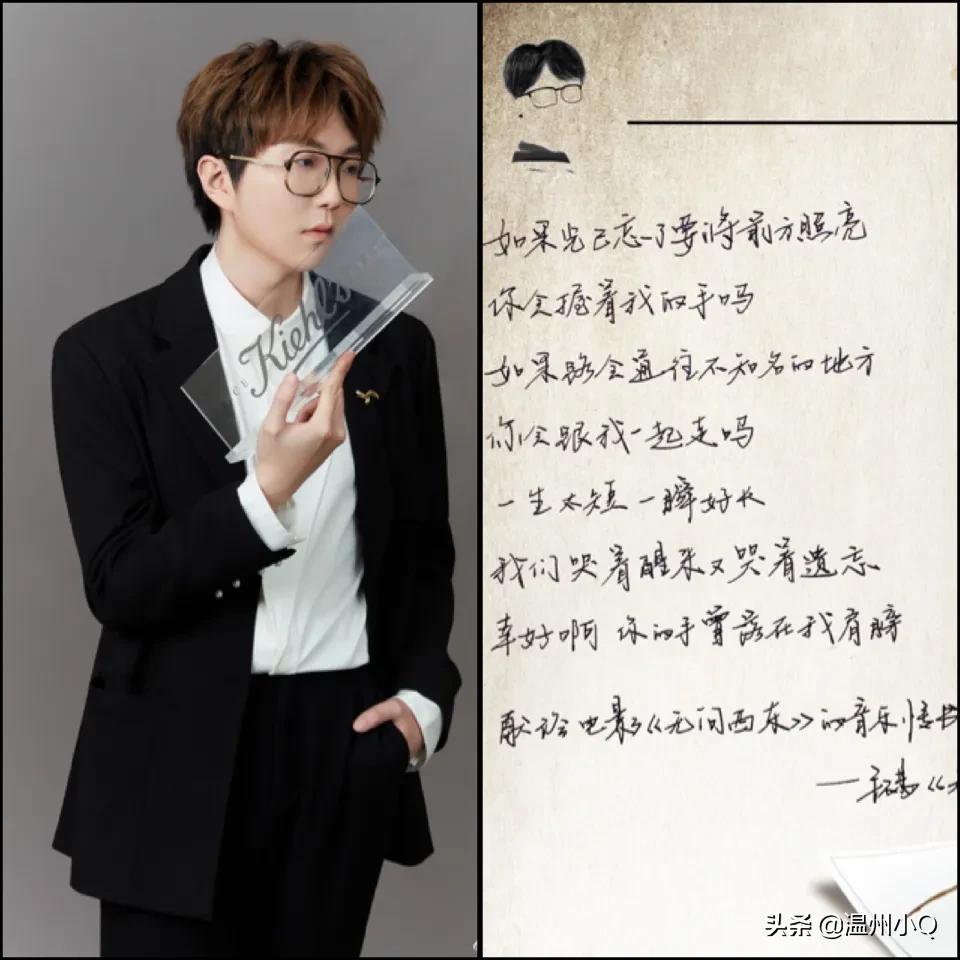 Kiehl's
如果光已忘了要将前方照亮
你会握着我的手吗
如果路会通往不知名的地方
你会跟我一起走吗
一生太短 一瞬好长
我们哭着醒来又哭着遗忘
幸好啊 你的手曾落在我肩膀
献给电影《无问西东》的音乐情书
头条 @温州小Q